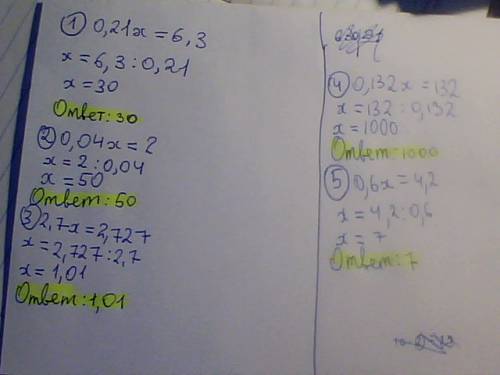 ① 0,21x = 6,3
x = 6,3 : 0,21
x = 30
Ответ: 30
② 0,04x = 2
x = 2 : 0,04
x = 50
Ответ: 50
③ 2,7x = 2,727
x = 2,727 : 2,7
x = 1,01
Ответ: 1,01
④ 0,132x = 132
x = 132 : 0,132
x = 1000
Ответ: 1000
⑤ 0,6x = 4,2
x = 4,2 : 0,6
x = 7
Ответ: 7